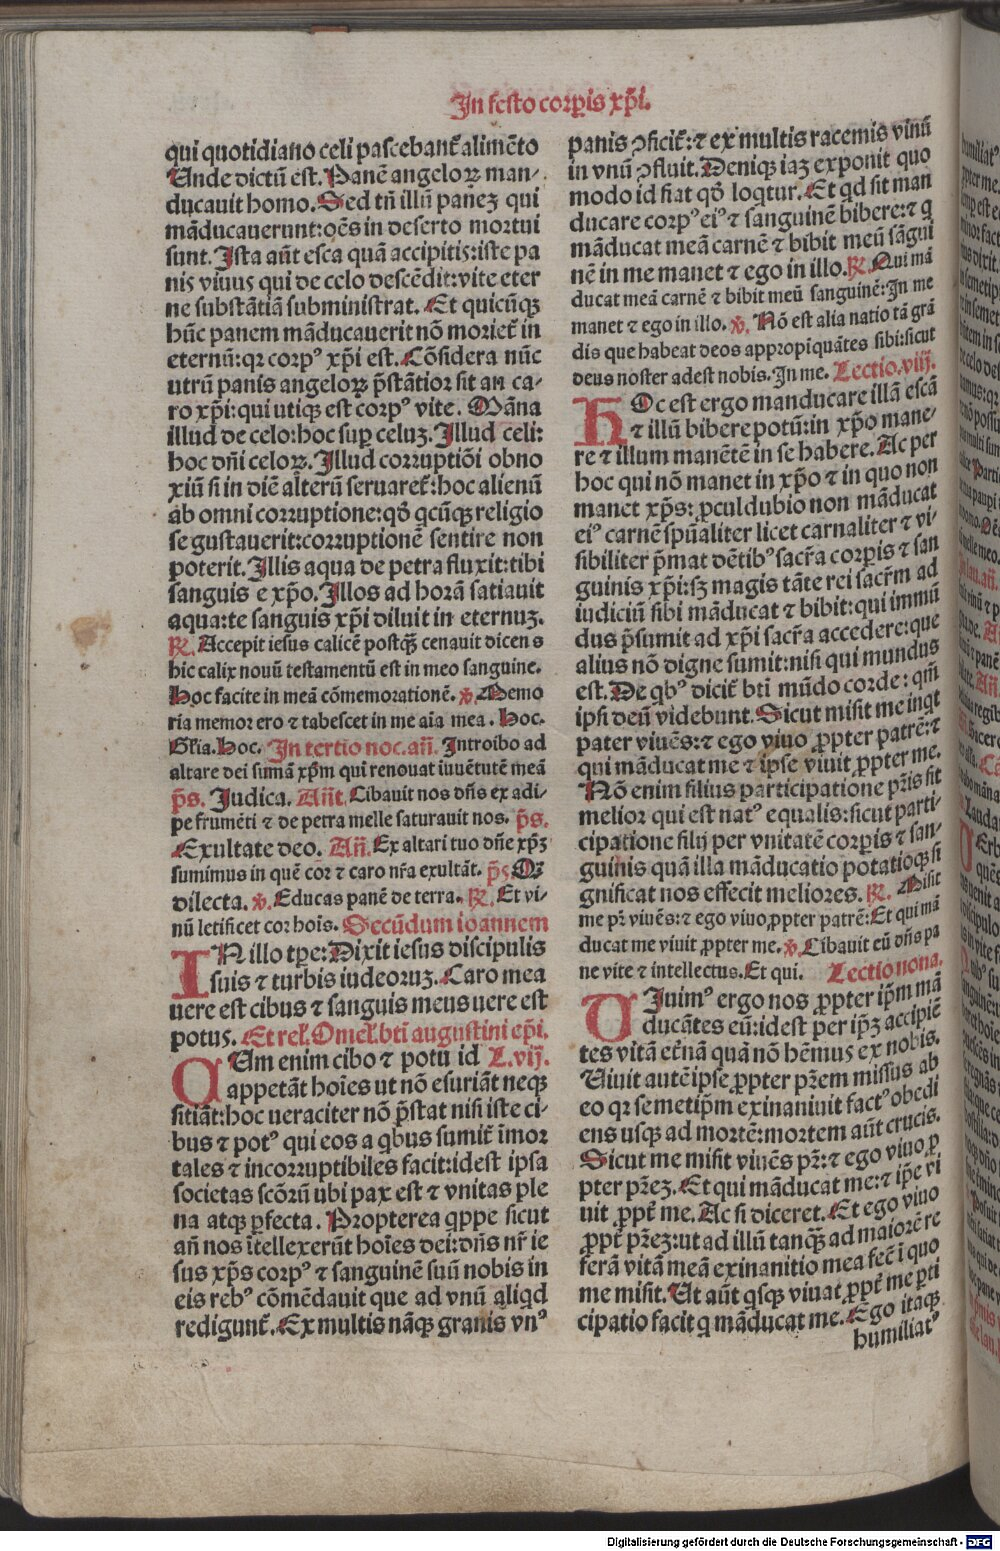 In festo corꝑis xp̄i.
qui quotidiano celi pascebant᷑ alimēto
Unde dictū est. Panē angeloꝝ man-
ducauit homo. Sed tn̄ illū paneꝫ qui
māducauerunt: oēs in deserto mortui
sunt. Ista aūt esca quā accipitis: iste pa
nis viuus qui de celo descēdit: vite eter
ne substātiā subministrat. Et quicūqꝫ
hūc panem māducauerit nō moriet᷑ in
eternū: qꝛ corpꝰ xp̄i est. Cōsidera nūc
utrū panis angeloꝝ p̄stātior sit an ca-
ro xp̄i: qui utiqꝫ est corpꝰ vite. Māna
illud de celo: hoc suꝑ celuꝫ. Illud celi:
hoc dn̄i celoꝝ. Illud corruptiōi obno
xiū si in diē alterū seruaret᷑: hoc alienū
ab omni corruptione: qd̄ qcūqꝫ religio
se gustauerit: corruptionē sentire non
poterit. Illis aqua de petra fluxit: tibi
sanguis e xp̄o. Illos ad horā satiauit
aqua: te sanguis xp̄i diluit in eternuꝫ.
℟. Accepit iesus calicē postqꝫ̄ cenauit dicens
hic calix nouū testamentū est in meo sanguine.
Hoc facite in meā cōmemorationē. ℣. Memo
ria memor ero ⁊ tabescet in me aīa mea. Hoc.
Gl̄ia. Hoc. In tertio noc. añ. Introibo ad
altare dei sumā xp̄m qui renouat iuuētutē meā
p̄s. Iudica. Añt. Cibauit nos dn̄s ex adi-
pe frumēti ⁊ de petra melle saturauit nos. p̄s.
Exultate deo. Añ. Ex altari tuo dn̄e xp̄ꝫ
sumimus in quē cor ⁊ caro nr̄a exultāt. p̄s Qꝫ
dilecta. ℣. Educas panē de terra. ℟. Et vi-
nū letificet cor hoīs. Secūdum ioannem
IN illo tp̄e: Dixit iesus discipulis
suis ⁊ turbis iudeoruꝫ. Caro mea
uere est cibus ⁊ sanguis meus uere est
potus. Et rel̄. Omel̄. bt̄i augustini ep̄i.
QUm enim cibo ⁊ potu id L. vij.
appetāt hoīes ut nō esuriāt neqꝫ
sitiāt: hoc ueraciter nō p̄stat nisi iste ci-
bus ⁊ potꝰ qui eos a qbus sumit᷑ īmor
tales ⁊ incorruptibiles facit: idest ipsa
societas scōrū ubi pax est ⁊ vnitas ple
na atqꝫ ꝑfecta. Propterea qppe sicut
añ nos ītellexerūt hoīes dei: dn̄s nr̄ ie
sus xp̄s corpꝰ ⁊ sanguinē suū nobis in
eis rebꝰ cōmēdauit que ad vnū aliqd
rediguntꝰ. Ex multis nāqꝫ granis vnꝰ
panis ꝯficit᷑: ⁊ ex multis racemis vinū
in vnū ꝯfluit. Deniqꝫ iaꝫ exponit quo
modo id fiat qd̄ loqtur. Et qd sit man
ducare corpꝰ eiꝰ ⁊ sanguinē bibere: ⁊ q
māducat meā carnē ⁊ bibit meū sāgui
nē in me manet ⁊ ego in illo. ℟. Qui mā
ducat meā carnē ⁊ bibit meū sanguinē: In me
manet ⁊ ego in illo. ℣. Nō est alia natio tā grā
dis que habeat deos appropīquātes sibi: sicut
deus noster adest nobis. In me. Lectio. viij.
HOc est ergo manducare illā escā
⁊ illū bibere potū: in xp̄o mane-
re ⁊ illum manētē in se habere. Ac per
hoc qui nō manet in xp̄o ⁊ in quo non
manet xp̄s: ꝓculdubio non māducat
eiꝰ carnē spūaliter licet carnaliter ⁊ vi-
sibiliter p̄mat dētibꝰ sacr̄a corꝑis ⁊ san
guinis xp̄i: sꝫ magis tāte rei sacr̄m ad
iudiciū sibi māducat ⁊ bibit: qui immū
dus p̄sumit ad xp̄i sacr̄a accedere: que
alius nō digne sumit: nisi qui mundus
est. De qbꝰ dicit᷑ bt̄i mūdo corde: qm̄
ipsi deū videbunt. Sicut misit me inqt
pater viuēs: ⁊ ego viuo ꝓpter patrē: ⁊
qui māducat me ⁊ ipse viuit ꝓpter me.
Nō enim filius participatione pr̄is fit
melior qui est natꝰ equalis: sicut parti-
cipatione filij per vnitatē corꝑis ⁊ san-
guinis quā illa māducatio potatioqꝫ si
gnificat nos effecit meliores. ℟. Misit
me pr̄ viuēs: ⁊ ego viuo ꝓpter patrē: Et qui mā
ducat me viuit ꝓpter me. ℣. Cibauit eū dn̄s pa
ne vite ⁊ intellectus. Et qui. Lectio nona.
VIuimꝰ ergo nos ꝓpter ip̄m mā
ducātes eū: idest per ip̄ꝫ accipiē
tes vitā et̄nā quā nō hēmus ex nobis.
Viuit autē ipse ꝓpter pr̄em missus ab
eo qꝛ semetip̄m exinaniuit factꝰ obedi
ens usqꝫ ad mortē: mortem aūt crucis.
Sicut me misit viuēs pr̄: ⁊ ego viuo ꝓ
pter pr̄eꝫ. Et qui māducat me: ⁊ ip̄e vi
uit ꝓpt᷑ me. Ac si diceret. Et ego viuo
ꝓpt᷑ pr̄eꝫ: ut ad illū tanqꝫ̄ ad maiorē re
ferā vitā meā exinanitio mea fecit ī quo
me misit. Ut aūt qsqꝫ viuat ꝓpt᷑ me ꝑti
cipatio facit q māducat me. Ego itaqꝫ
humiliatꝰ
Digitalisierung gefördert durch die Deutsche Forschungsgemeinschaft - DFG